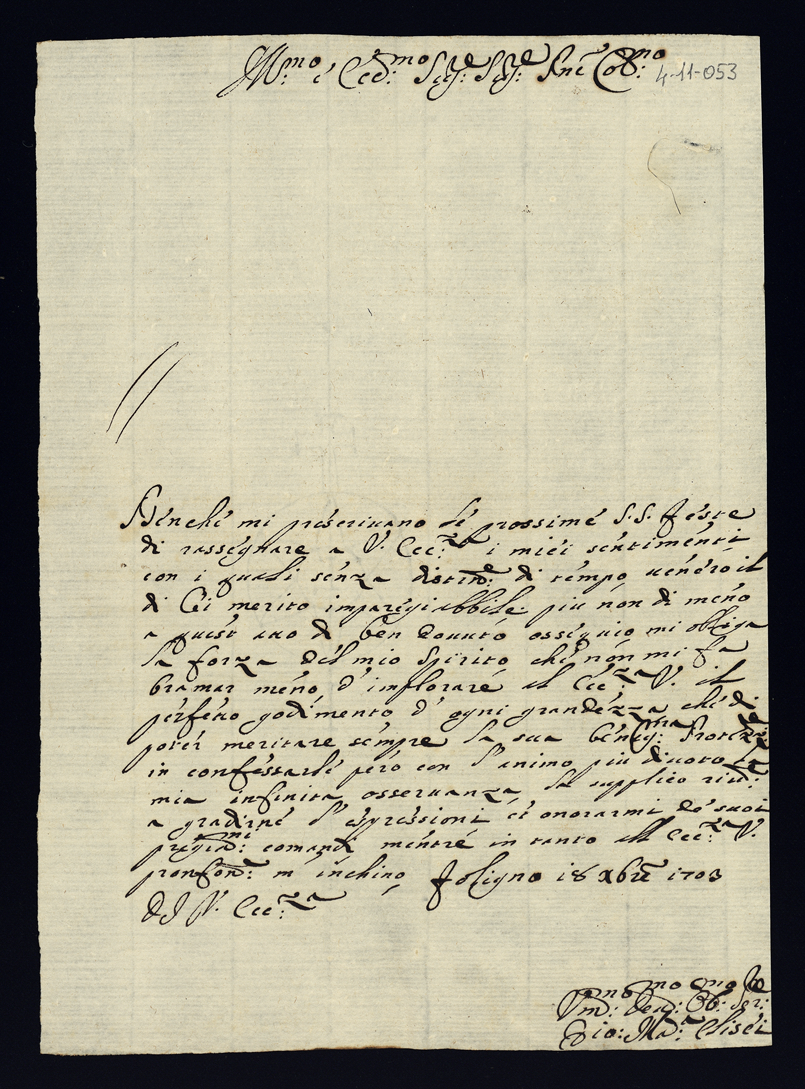 Ill:mo è Ecc:mo Sig:re Sig:re Pne Col:mo 4-11-053
Benche mi preserivano le prossime S.S. feste
di rassegnare a V. Ecc:za i miei sentimenti
con i quali senza distin:e di tempo venero il
di Lei merito impareggiabbile più non di meno
a quest uno di ben dovuto ossequio mi obliga
la forza del mio spirito che non mi fa
bramar meno d'implorare all Ecc:za V. il
perfetto godimento d'ogni grandezza che di
poter meritare sempre la sua benig:ma Protez:ne
in confessarle però con l'animo più divoto la
mia infinita osservanza, la supplico riv:
a gradirne l'espressioni et onorarmi de suoi
pregiat:mi comandi mentre in tanto all Ecc:za V.
profon: m'inchino, Foligno 18 Xbre 1703
Di V. Ecc:za
Vm:no Deu:mo Ob:mo Ser:re
Gio: Ma:a Elisei